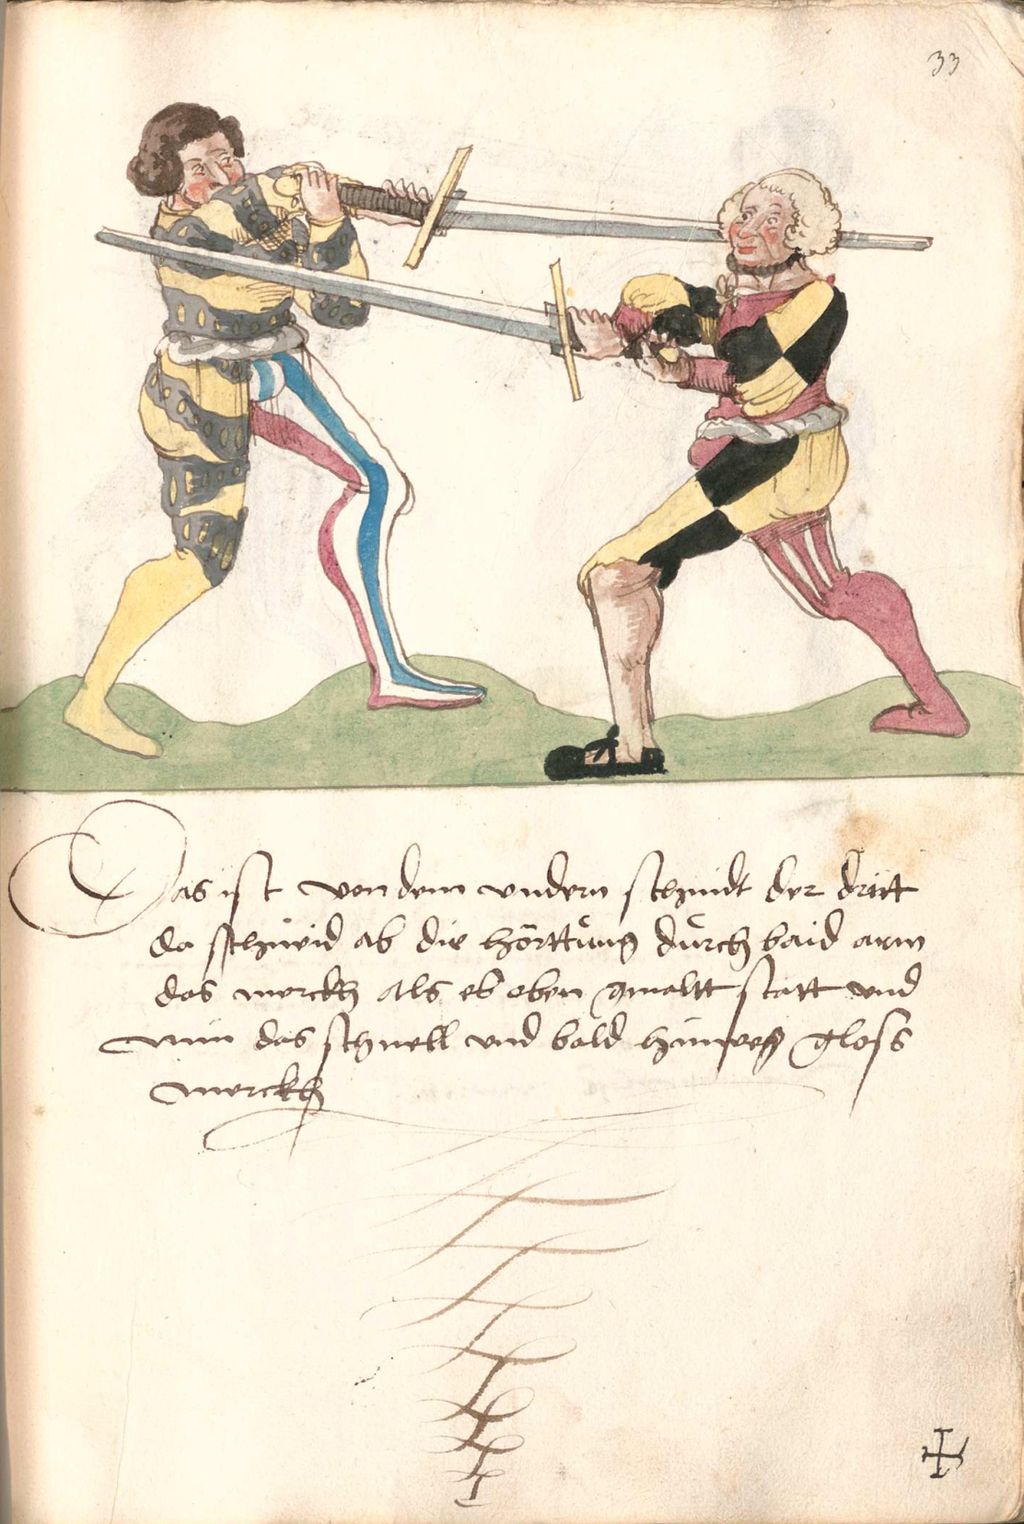 33
Das ist von dem undern schnidt der dritt
da schneid ab die hörttůng důrch baid arm
das merckh als eß oben gmaltt statt und
nim das schnell und bald hinweg gloss
merckh